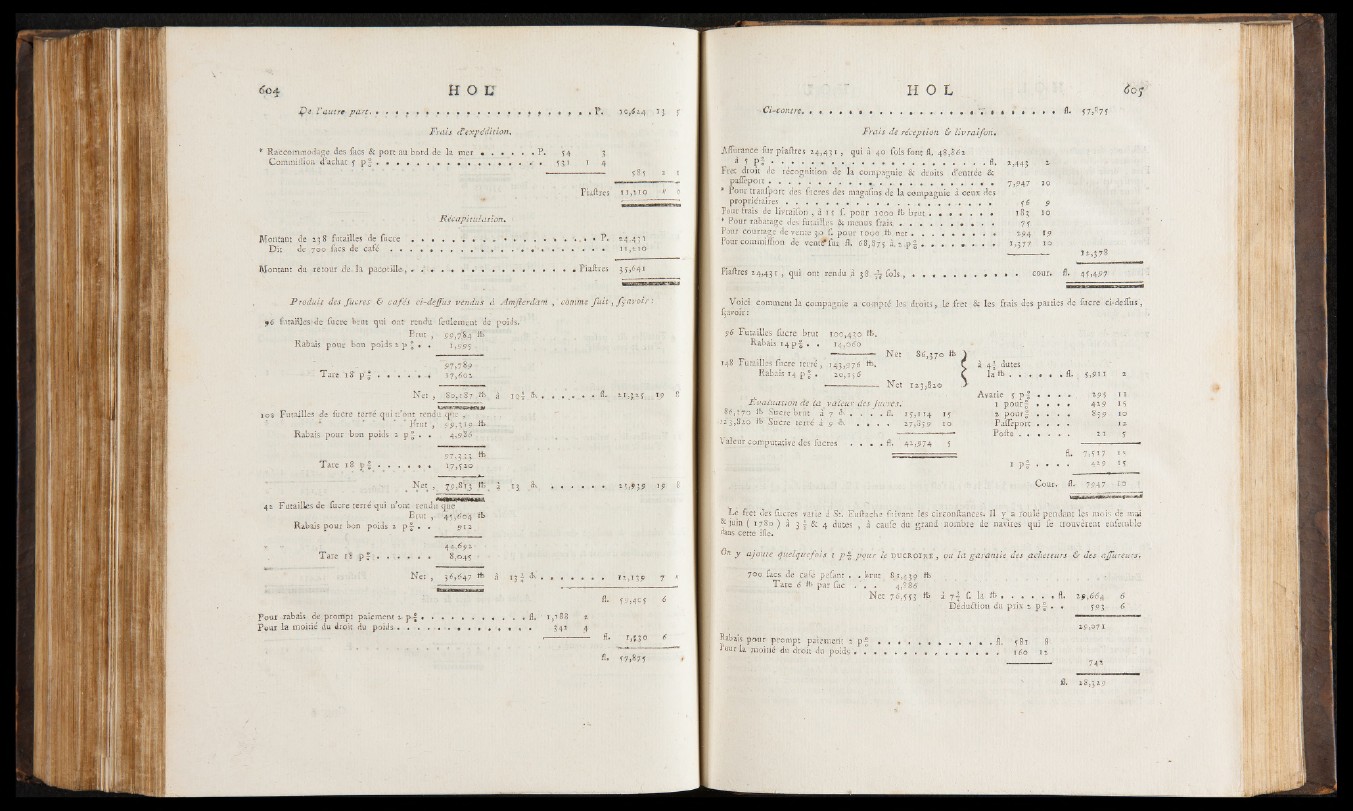 604 HOL
De l'autre part. . . . P. 10,624 13 5
Frais d'expédition.
* Raccommodage des sacs & port au bord de la mer . . . . P. 54 3
Commission d'achat 5 p 0/0 . . . . 531 1 4
585 2 1
Piastres 11,210
Récapitulation.
Montant de 238 futailles de sucre . . . . P. 24,431
Dit de 700 sacs de café . . . . 11,210
Montant du retour de la pacotille, . . . . Piastres 35,641
Produit des sucres & cafés ci-dessus vendus à Amsterdam, comme suit, sçavoir :
96 futailles de sucre brut qui ont rendu seulement de poids.
Brut, 99,784 lb
Rabais pour bon poids 2 p 0/0 . . 1,995
97,789
Tare 18 p 0/0 . . . . 17,602
Net, 80,187 lb à 10 1/2 . . . . fl. 21,325 19 8
102 Futailles de sucre terré qui n'ont rendu que
Brut, 99,319 lb
Rabais pour bon poids 2 p 0/0 . . 4,986
97,333 lb
Tare 18 p 0/0 . . . . 17,520
Net, 79,813 lb à 13 . . . . 25,939 19 8
42 Futailles de sucre terré qui n'ont rendu que
Brut, 45,604 lb
Rabais pour bon poids 2 p 0/0 . . 912
44,692
Tare 18 p 0/0 . . . . 8,045
Net, 36,647 lb à 13 1/4 . . . . 12,139 7
fl. 59,405 6
Pour rabais de prompt paiement 2 p 0/0 . . . . fl. 1,188 2
Pour la moitié du droit du poids . . . . 342 4
fl. 1,530 6
fl. 57,875
HOL 605
Ci-contre. . . . fl. 57,875
Frais de réception & livraison.
Assurance sur piastres 24,431, qui à 40 sols font fl. 48,862
à 5 p 0/0 . . . . fl. 2,443 2
Fret droit de récognition de la compagnie & droits d'entrée &
passeport . . . . 7,947 10
* Pour transport des sucres des magasins de la compagnie à ceux des
propriétaires . . . . 56 9
Pour frais de livraison, à 11 f. pour 1000 lb brut . . . . 183 10
* Pour rabatage des futailles & menus frais . . . . 75
Pour courtage de vente 30 f. pour 1000 lb net . . . . 294 19
Pour commission de vente sur fl. 68,875 à 2 p 0/0 . . . . 1,377 10
12,378
Piastres 24,431, qui ont rendu à 38 sols, . . . . cour. fl. 45,497
Voici comment la compagnie a compté les droits, le fret & les frais des parties de sucre ci-dessus,
sçavoir :
96 Futailles sucre brut 100,430 lb.
Rabais 14 p 0/0 . . 14,060
Net 86,370 lb
148 Futailles sucre terré, 143,976 lb.
Rabais 14 p 0/0 . 20,156
Net 123,820
à 4 1/2 dutes
la lb . . . . fl. 5,911 2
Évaluation de la valeur des sucres.
86,370 lb Sucre brut à 7 . . . . fl. 15,114 15
123,820 lb Sucre terré à 9 . . . . 27,859 10
Valeur computative des sucres . . . . fl. 42,974 5
Avarie 5 p 0/0 . . . . 295 11
1 pour 0/0 . . . . 429 15
2 pour 0/0 . . . . 859 10
Passeport . . . . 12
Poste . . . . 21 5
fl. 7,517 15
1 p 0/0 . . . . 429 15
Cour. fl. 7947 10
Le fret des sucres varie à St. Eustache suivant les circonstances. Il y a roulé pendant les mois de mai
& juin (1780) à 3 1/2 & 4 dutes, à cause du grand nombre de navires qui se trouvèrent ensemble
dans cette isle.
On y ajoute quelquefois 1 p 0/0 pour le DUCROIRE, ou la garantie des acheteurs & des assureurs.
700 sacs de café pesant . . brut 81,439 lb
Tare 6 lb par sac . . . 4,886
Net 76,553 lb à 7 3/4 f. la lb . . . . fl. 29,664 6
Déduction du prix 2 p 0/0 . . 593 6
29,071
Rabais pour prompt paiement 2 p 0/0 . . . . fl. 581 8
Pour la moitié du droit du poids . . . . 160 12
742
fl. 28,329